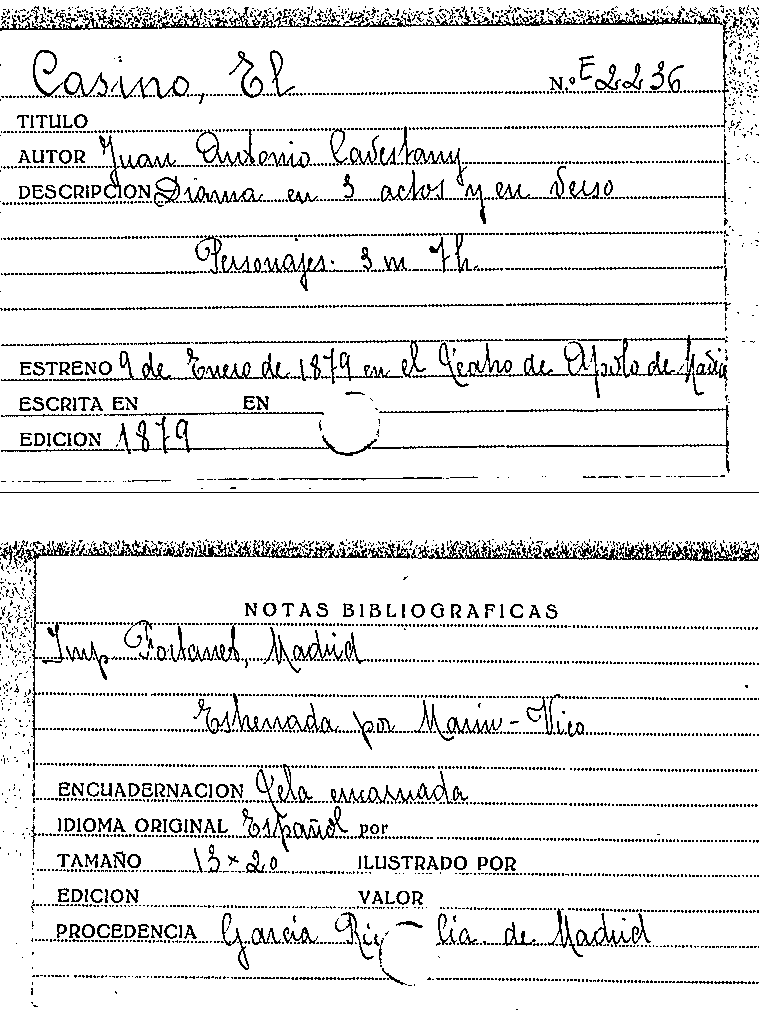 Casino, El
N.º E 2236
TITULO
AUTOR Juan Antonio Cavestany
DESCRIPCION Drama en 3 actos y en verso
Personajes. 3 m 7 h.
ESTRENO 9 de Enero de 1879 en el Teatro de Apolo de
ESCRITA EN EN
EDICION 1879
NOTAS BIBLIOGRAFICAS
Imp Fortanet, Madrid
Estrenada por Marin-Vico
ENCUADERNACION Tela encarnada
IDIOMA ORIGINAL Español por
TAMAÑO 13 x 20 ILUSTRADO POR
EDICION VALOR
PROCEDENCIA García de Madrid